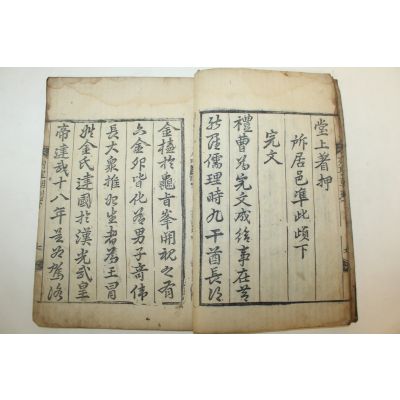 堂上著押
所居邑準此頉下
完文
禮曹為完文成給事在昔
儒理時九干酋長
金榼於龜旨峯開視之有
六金卯皆化為男子奇偉
長大衆推始生者為王冒
姓金氏建國於漢光武皇
帝建武十八年